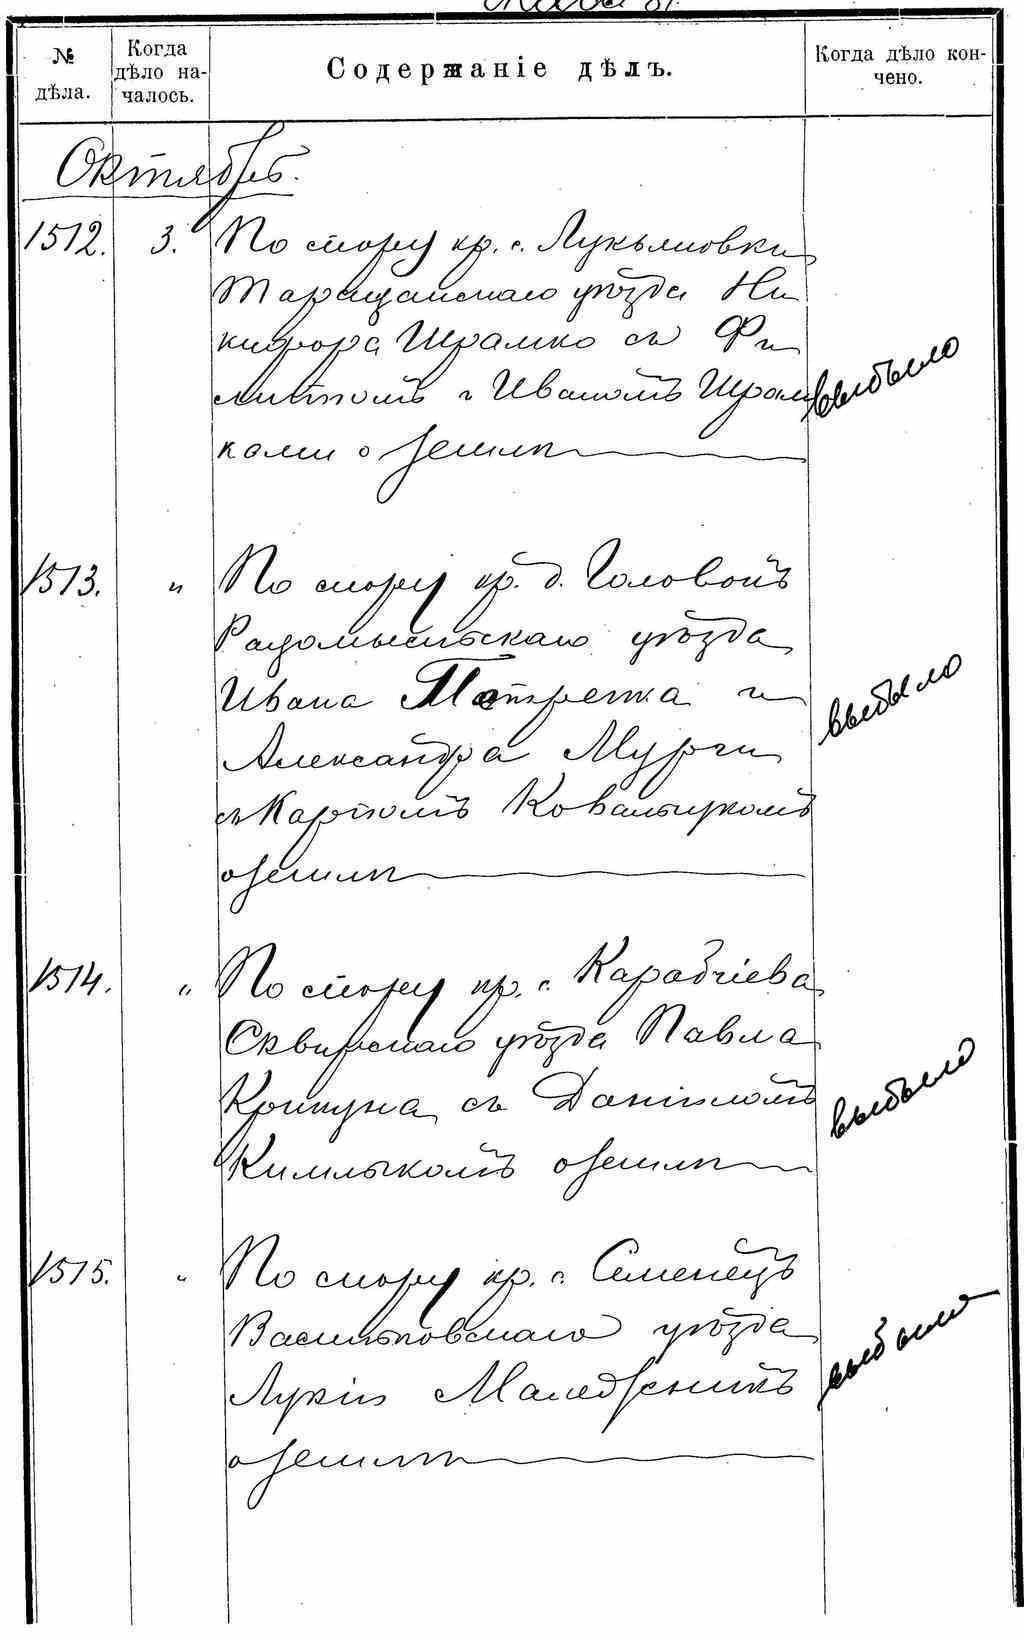 № дѣла.
Когда дѣло на-
чалось.
Содержаніе дѣлъ.
Когда дѣло кон-
чено.
Октябрь.
1512. 3. По спору кр. с. Лукьяновки
Таращанскаго уѣзда Ни
кифора Шрамко съ Фи
липпомъ и Иваномъ Шрам
ками о землѣ
выбыло
1513. " По спору кр. д. Головокъ
Радомысльскаго уѣзда
Ивана и
Александра Мурги
съ Карпомъ Ковальчукомъ
о землѣ
выбыло
1514. " По спору кр. с. Карабчіева
Сквирскаго уѣзда Павла
Крикуна съ Даніиломъ
о землѣ
выбыло
1515. " По спору кр. с. Семенецъ
Васильковскаго уѣзда
Лукіи
о землѣ
выбыло